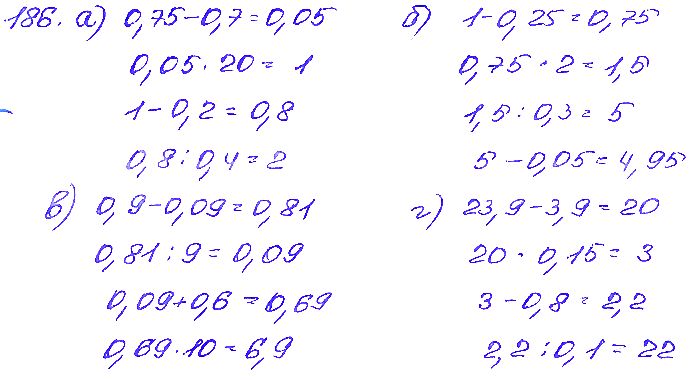 186. а) 0,75-0,7=0,05
0,05·20=1
1-0,2=0,8
0,8:0,4=2
б) 1-0,25=0,75
0,75·2=1,5
1,5:0,3=5
5-0,05=4,95
в) 0,9-0,09=0,81
0,81:9=0,09
0,09+0,6=0,69
0,69·10=6,9
г) 23,9-3,9=20
20·0,15=3
3-0,8=2,2
2,2:0,1=22